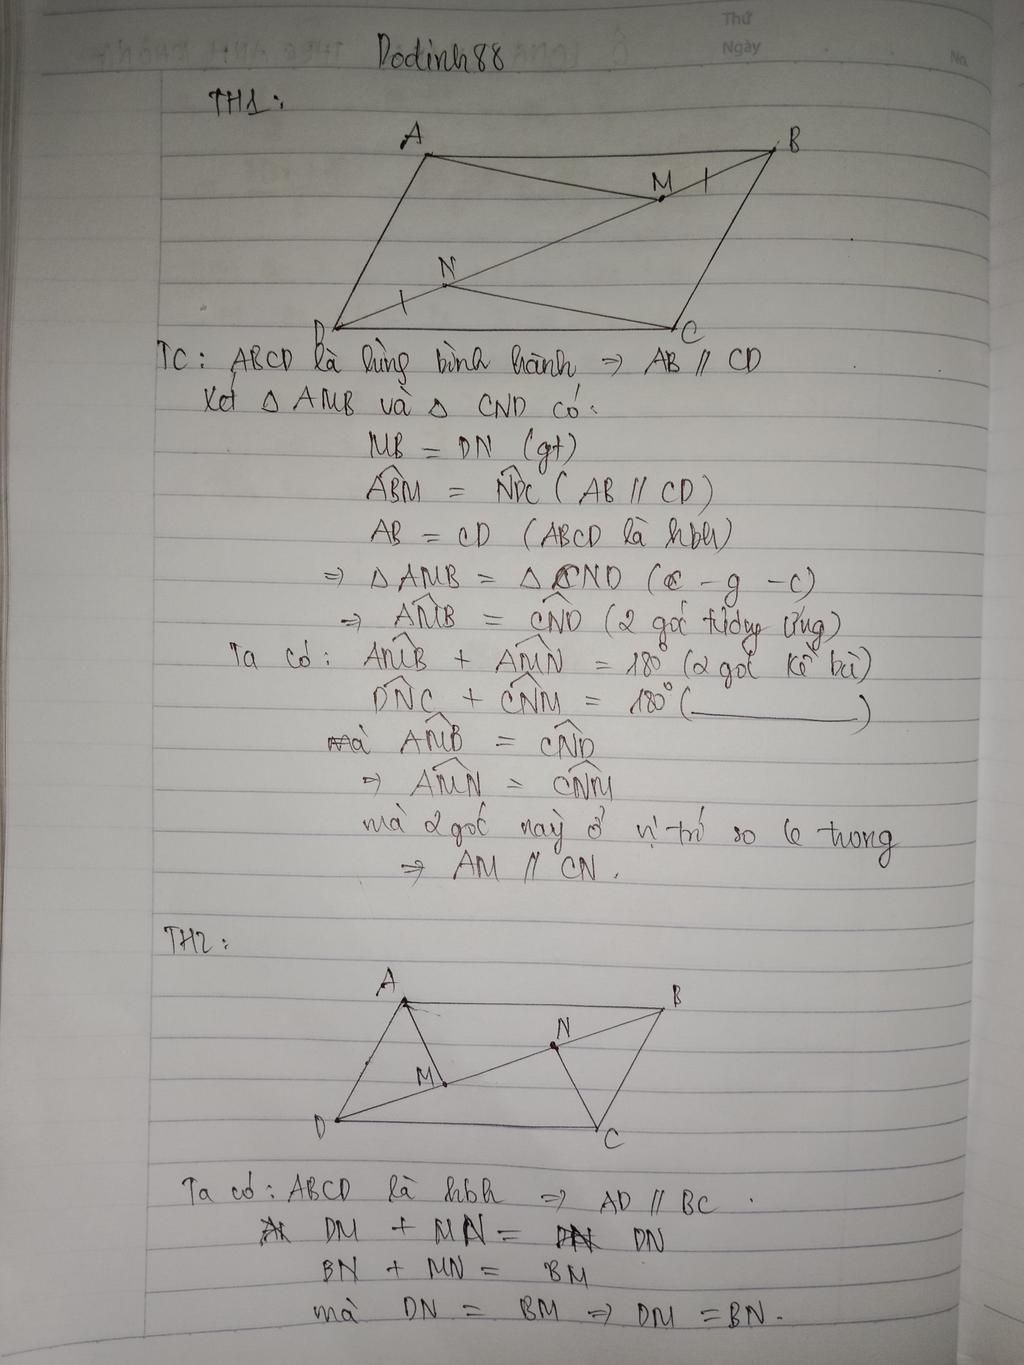 Thứ
Ngày
No
Dodinh88
TH1:
A
B
M
N
D
C
TC: ABCD là hình bình hành => AB // CD
Xét △ AMB và △ CND có:
MB = DN (gt)
ABM = NDC ( AB // CD )
AB = CD (ABCD là hbh)
=> △ AMB = △ CND (c - g - c)
=> AMB = CND (2 góc tương ứng)
Ta có: AMB + AMN = 180° (2 góc kề bù)
DNC + CNM = 180° ( )
Mà AMB = CND
=> AMN = CNM
mà 2 góc này ở vị trí so le trong
=> AM // CN .
TH2:
A
B
N
M
D
C
Ta có: ABCD là hbh => AD // BC .
DM + MN = DN
BN + MN = BM
mà DN = BM => DM = BN .